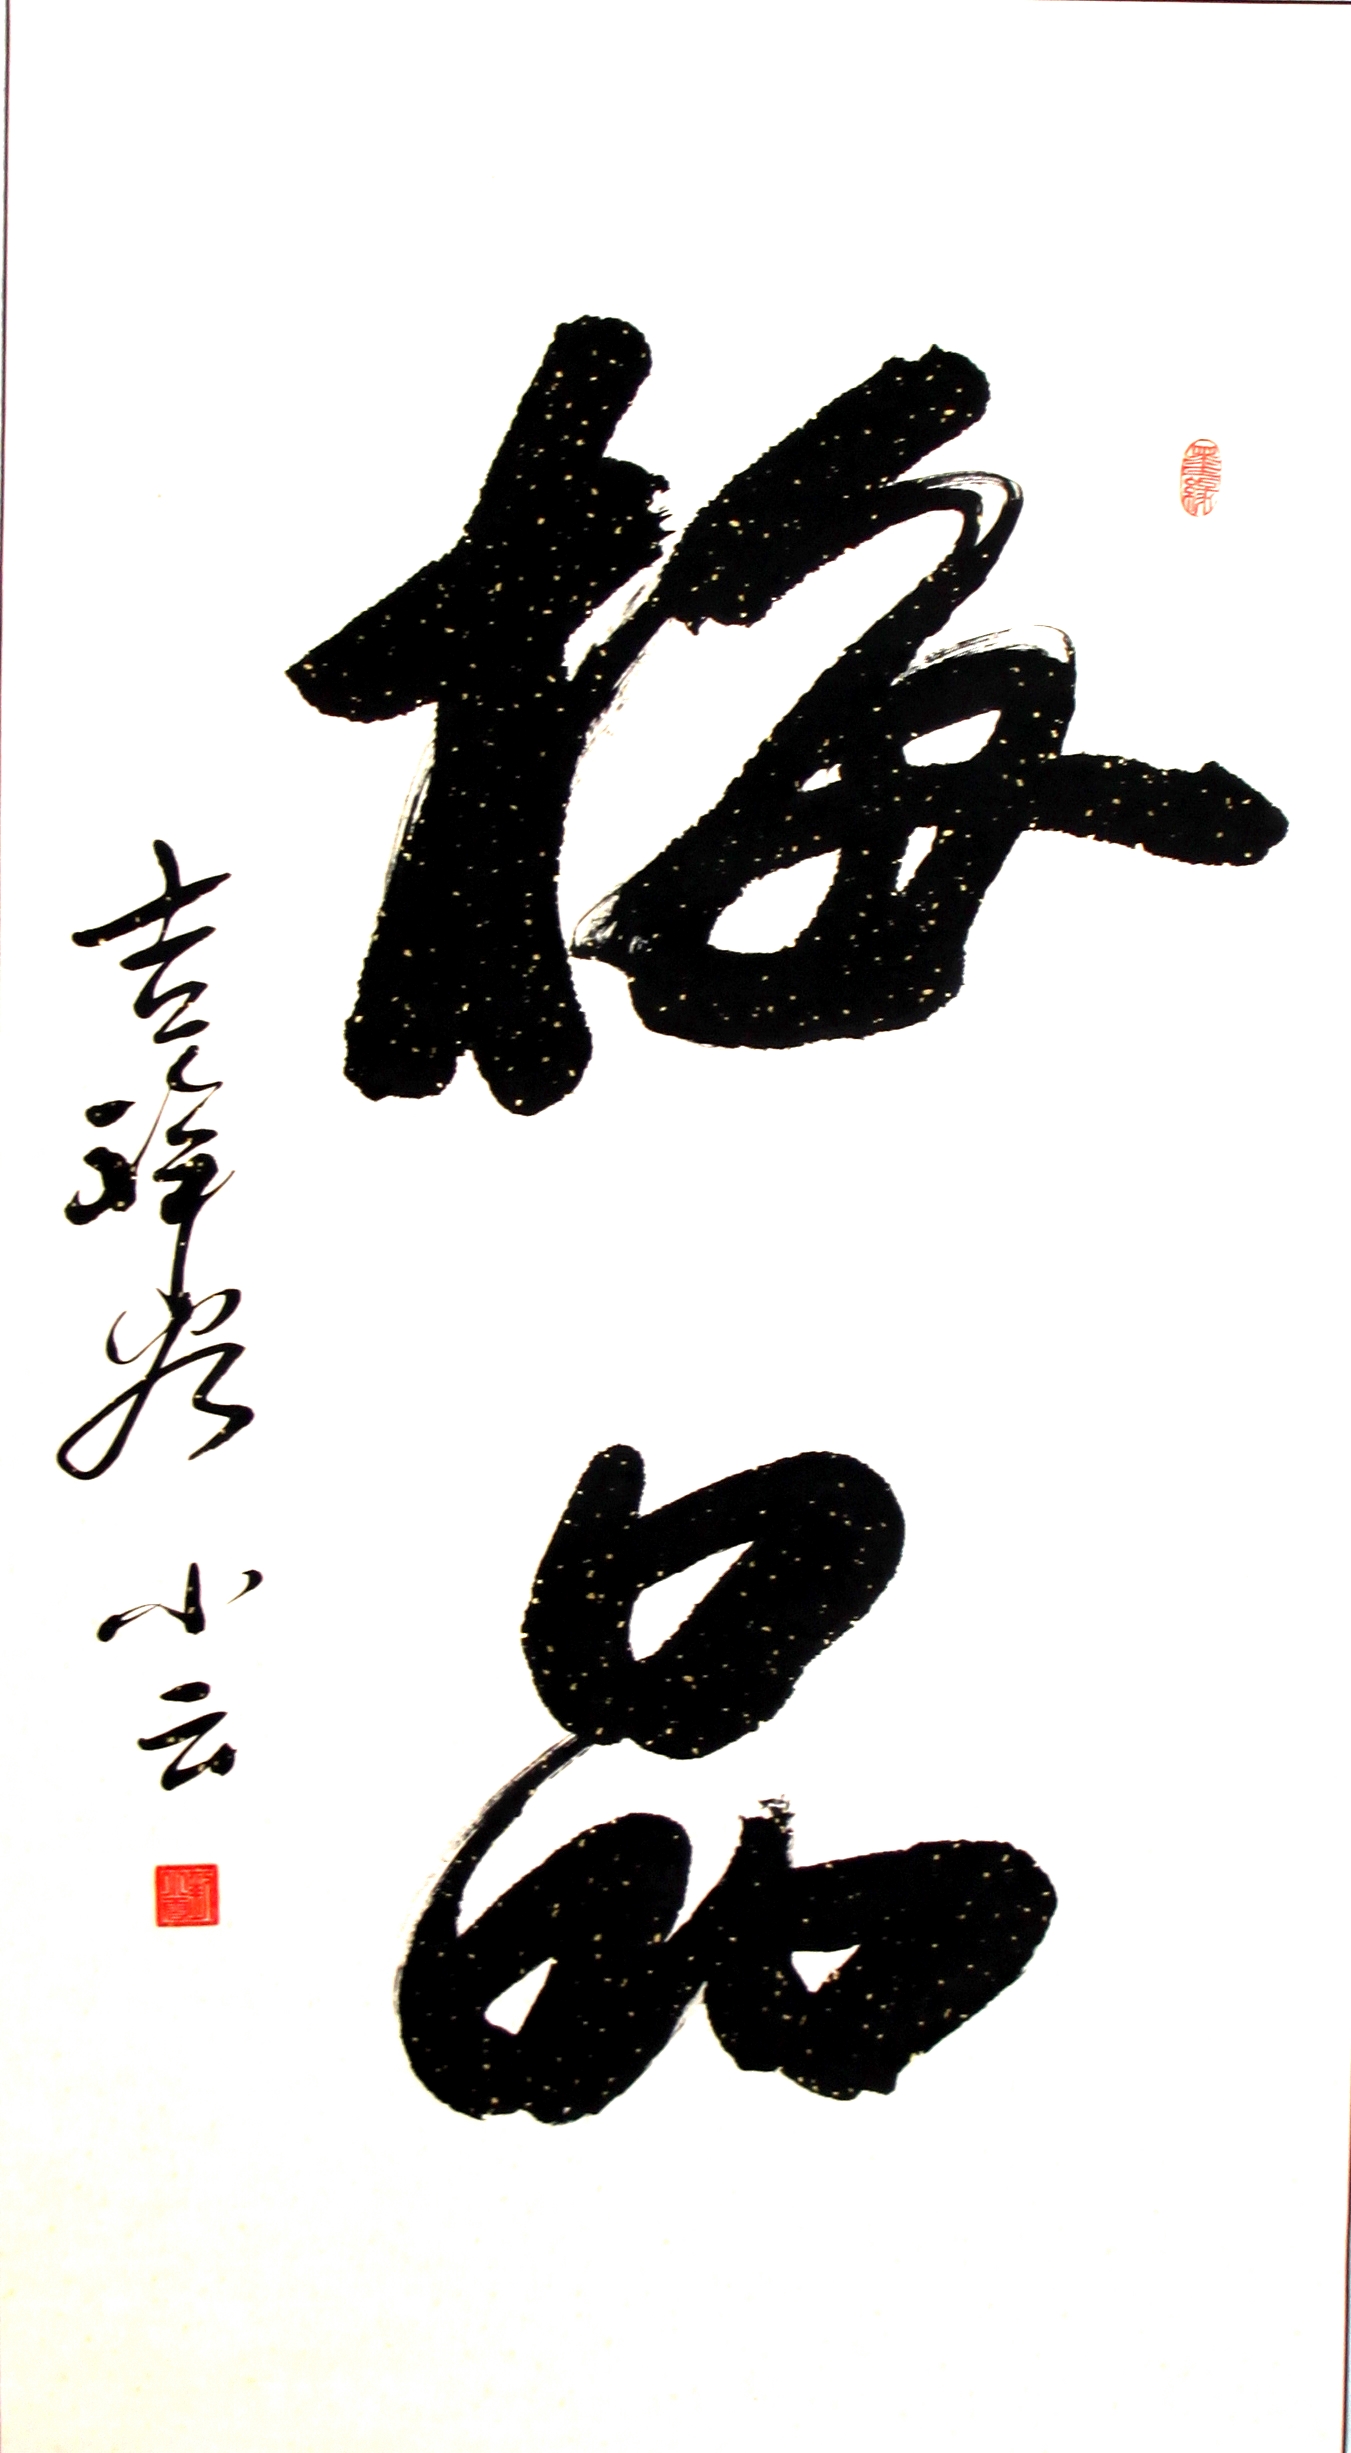 梅品
吉祥岩 小云